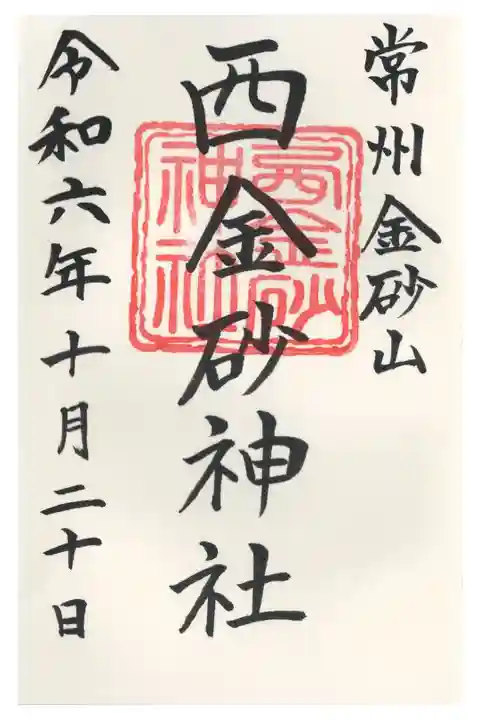 常州金砂山
西金砂神社
西金砂
神社
令和六年十月二十日